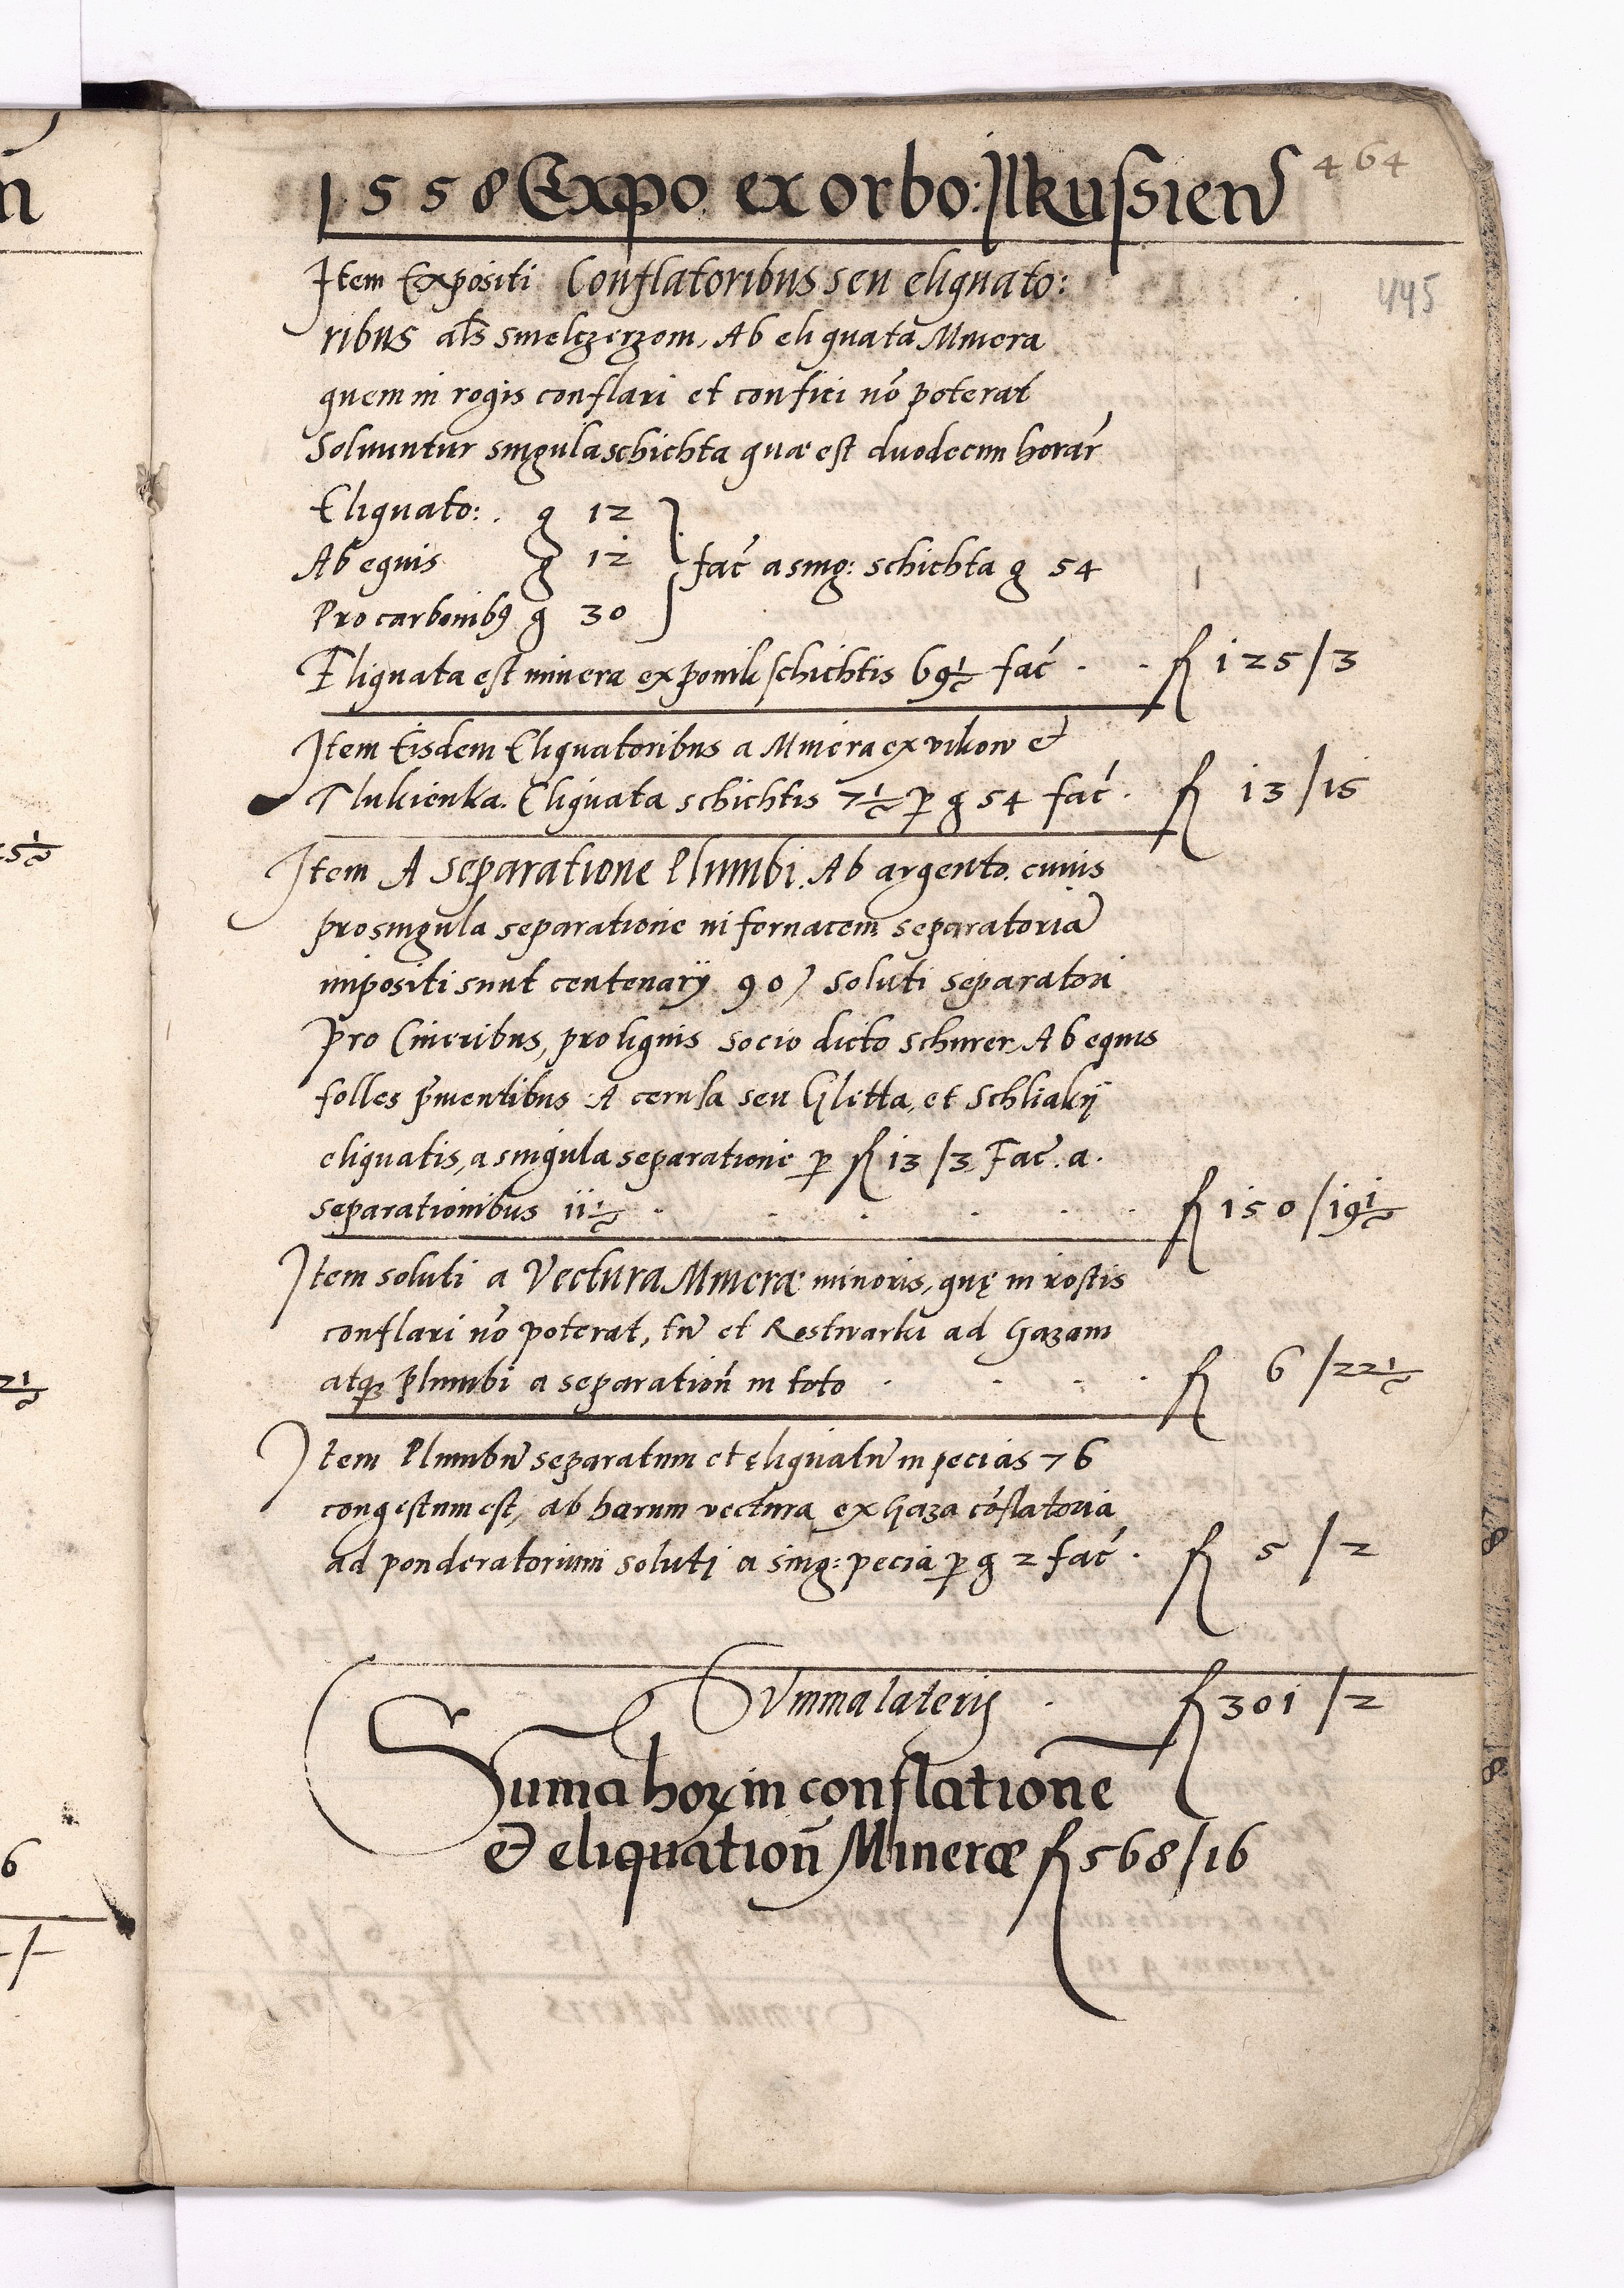 464
1558 Expo ex orbo: Jlkussien̄
445
Jtem Expositi Conflatoribus seu eliquato:
ribus als smelczerzom, Ab eliquata Minera
quem in rogis conflari et confici nō poterat
Soluuntur singula schichta quæ est duodecim horar̄
Eliquato: . g 12
Ab equis g 12 fac̄ a sing: schichta g 54
Pro carbonibꝰ g 30
Eliquata est minera ex ponik schichtis 69½ fac̄ . . fl 125/3
Jtem Eisdem Eliquatoribus a Minera ex vikow et
Tlukienka. Eliquata schichtis 7½ p g 54 fac̄ . fl 13/15
Jtem A separatione Plumbi. Ab argento. cuius
pro singula separatione in fornacem separatoriā
impositi sunt centenarij 90) soluti separatori
Pro Cineribus, pro lignis socio dicto schurer, Ab equis
folles p̄mentibus A cerusa seu Gletta, et Schliakij
eliquatis, a singula separatione p fl 13/3 Fac̄. a.
separationibus ii½ . . . . . . fl 150/19½
Jtem soluti a Vectura Mineræ minoris, quę in rostis
conflari nō poterat, tū et Restwarku ad Hazam
atqꝫ Plumbi a separation̄ in toto . . . . fl 6/22½
Jtem Plumbū separatum et ęliquatū in pecias 76
congestum est, ab harum vectura ex haza cōflatoria
ad ponderatorium soluti a sing: pecia p g 2 fac̄ . fl 5/2
Summa lateris . fl 301/2
Suma hoꝝ in conflatione
et eliquation̄ Mineræ fl 568/16